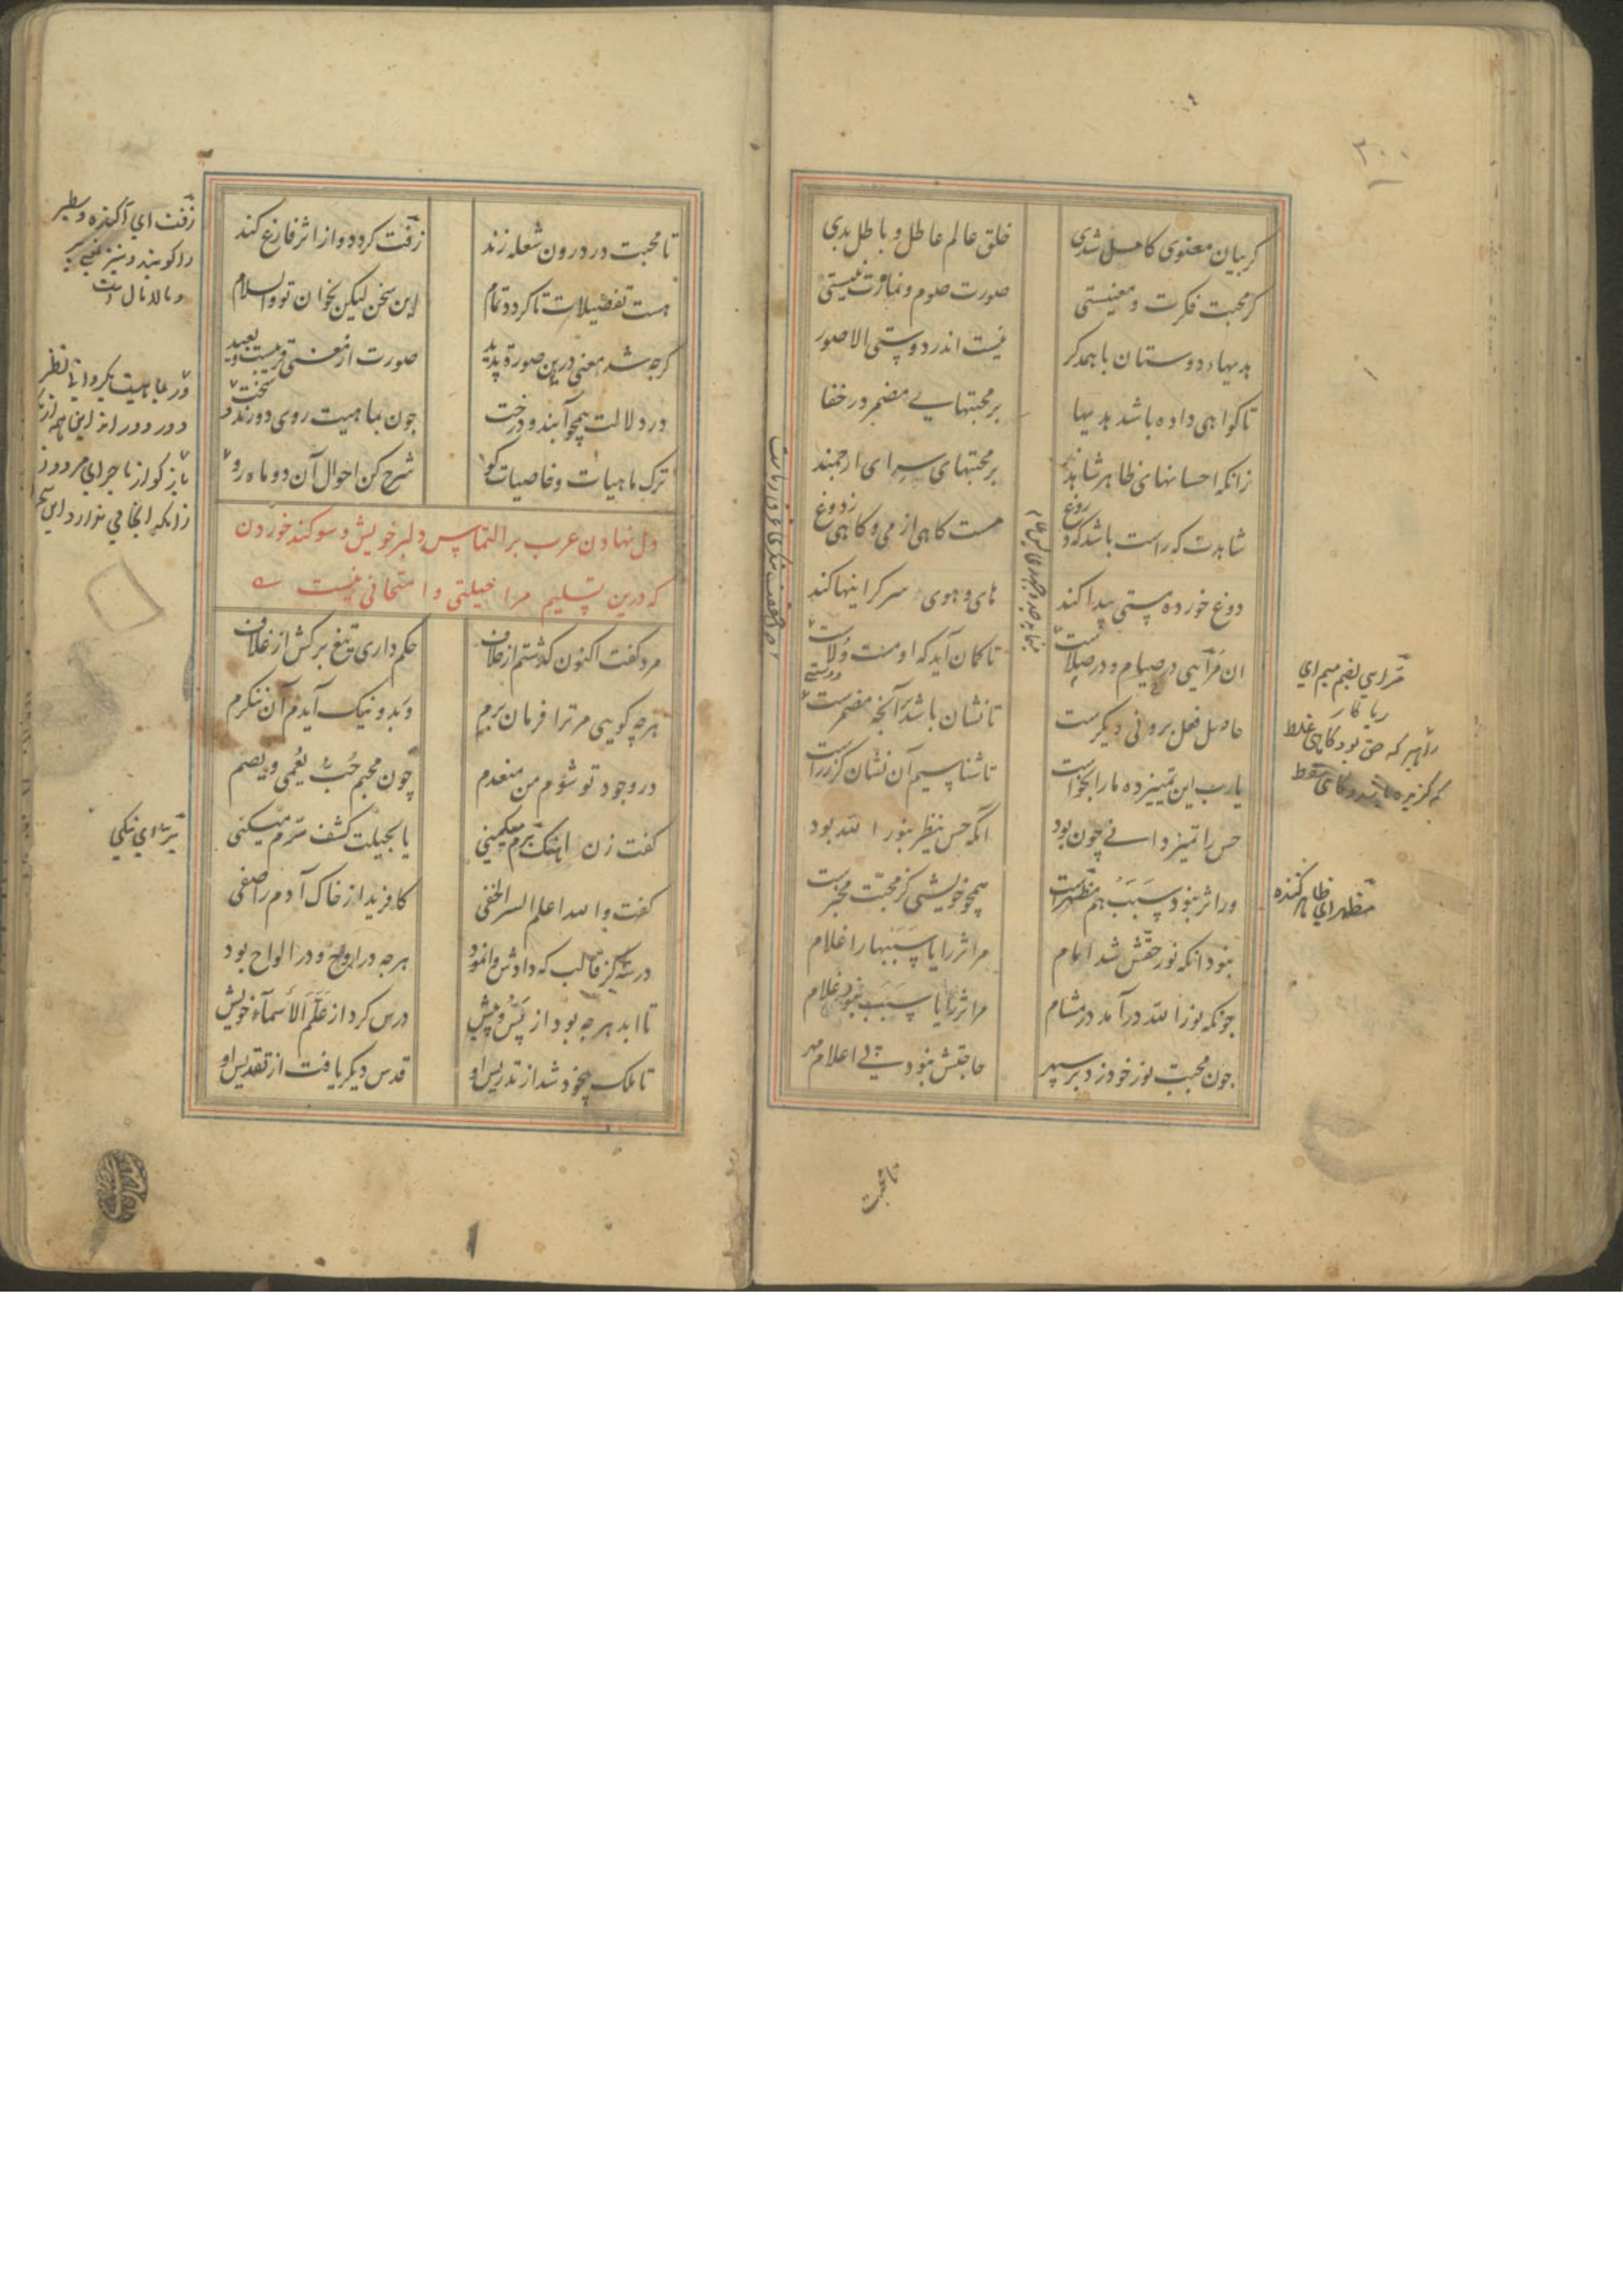 ۳۰۰
کر بیان معنوی کامل شدی خلق عالم عاطل و باطل بدی
کر محبت فکرت و معنیستی صورت صوم و نمازت نیستی
هدیهاء دوستان با همدکر نیست اندر دوستی الا صور
تا کواهی داده باشد هدیها بر محبتهایی مضمر در خفا
زانکه احسانهای ظاهر شاهدند بر محبتهای سر ای ارجمند
شاهدت که راست باشد که دروغ مست کاهی از می و کاهی ز دوغ
دوغ خورده مستی پیدا کند های و هوی و سر کرانیها کند
ان مرایی در صیام و در صلاست تا کمان آید که او مست ولاست
حاصل فعل برونی دیکرست تا نشان باشد بر آنچه مضمرست
یارب این تمییز ده ما را بخواست تا شناسیم آن نشان کژ ز راست
حس را تمییز دانی چون بود انکه حس ینظر بنور الله بود
ور اثر نبود سبب هم مظهرست همچو خویشی کز محبت مخبرست
نبود انکه نور حقش شد امام مر اثر را یا سببها را غلام
چونکه نور الله درآمد در مشام مر اثر را یا سبب نبود غلام
چون محبت نور خود زد بر سپهر حاجتش نبود پی اعلام مهر
مرایی بضم میم ای
ریا کار
راهبر که حق بود کاهی غلط
که کزیده باشد و کاهی سقط
مظهر ای ظاهر کننده
تا محبت
تا محبت در درون شعله زند زفت کردد و از اثر فارغ کند
هست تفصیلات تا کردد تمام این سخن لیکن بخوان تو والسلام
کرچه شد معنی درین صورة پدید صورت از معنی قریبست و بعید
در دلالت همچو آبند و درخت چون بماهیت روی دورند سخت
ترک ماهیات و خاصیات کو شرح کن احوال آن دو ماه رو
دل نهادن عرب بر التماس دلبر خویش و سوکند خوردن
که درین تسلیم مرا حیلتی و امتحانی نیست
مرد کفت اکنون کذشتم از خلاف حکم داری تیغ برکش از غلاف
هرچه کویی مر ترا فرمان برم وز بد و نیک آیدم آن ننکرم
در وجود تو شوم من منعدم چون محبم حب یعمی و یصم
کفت زن اهنک برم میکنی یا بحیلت کشف سرم میکنی
کفت والله اعلم السر الخفی کافرید از خاک آدم را صفی
در سه کز قالب که دادش وا نمود هرچه در ارواح و در الواح بود
تا ابد هرچه بود از پس و پیش درس کرد از علم الاسماء خویش
تا ملک بیخود شد از تدریس او قدس دیکر یافت از تقدیس او
زفت ای آکنده و سطبر
را کویند و نیز
و مالامال است
ور بماهیت بکردانی نظر
دور دور اند این همه از
باز کو از ماجرای مرد و زن
زانکه انجامی ندارد این سخن
بر ای نیکی